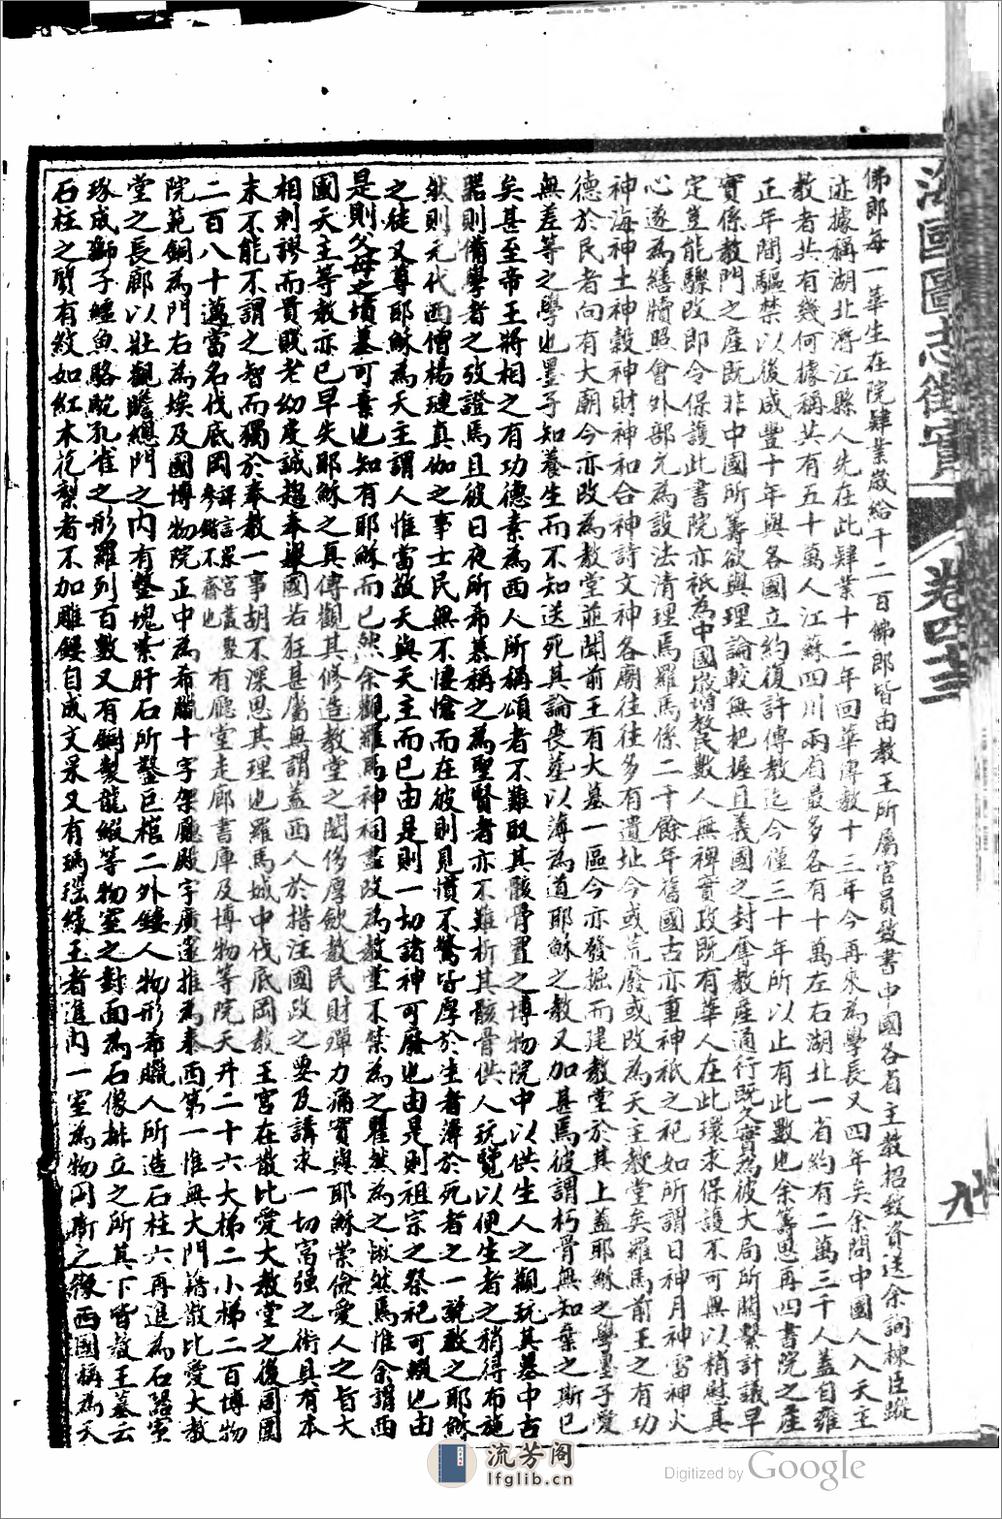 海國圖志徵實
卷四十三
九
佛郎每一華生在院肄業歲給千二百佛郎皆由教王所屬官員致書中國各省主教招致資送余詞棣臣蹤
迹據稱湖北潛江縣人先在此肄業十二年回華傳教十三年今再來為學長又四年矣余問中國人入天主
教者共有幾何據稱共有五十萬人江蘇四川兩省最多各有十萬左右湖北一省約有二萬三千人蓋自雍
正年間驅禁以後咸豐十年與各國立約復許傳教迄今僅三十年所以止有此數也余籌思再四書院之產
實係教門之產既非中國所籌欲與理論較無把握且義國之封奪教產通行既久實為彼大局所關繫計議早
定豈能驟改即令保護此書院亦祇為中國歲增教民數人無裨實政既有華人在此環求保護不可無以稍慰其
心遂為繕牘照會外部允為設法清理焉羅馬係二千餘年舊國古亦重神祇之祀如所謂日神月神雷神火
神海神土神穀神財神和合神詩文神各廟往往多有遺址今或荒廢或改為天主教堂矣羅馬前王之有功
德於民者向有大廟今亦改為教堂並聞前王有大墓一區今亦發掘而建教堂於其上蓋耶穌之學墨子愛
無差等之學也墨子知養生而不知送死其論喪葬以薄為道耶穌之教又加甚焉彼謂朽骨無知棄之斯已
矣甚至帝王將相之有功德素為西人所稱頌者不難取其骸骨置之博物院中以供生人之觀玩其墓中古
器則備學者之攷證焉且彼日夜所希慕稱之為聖賢者亦不難析其骸骨供人玩覽以便生者之稍得布施
然則元代西僧楊璉真伽之事士民無不悽愴而在彼則見慣不驚皆厚於生者薄於死者之一說啟之耶穌
之徒又尊耶穌為天主謂人惟當敬天與天主而已由是則一切諸神可廢也由是則祖宗之祭祀可輟也由
是則父母之墳墓可棄也知有耶穌而已然余觀羅馬神祠盡改為教堂不禁為之瞿然為之愀然焉惟余謂西
國天主等教亦已早失耶穌之真傳觀其修造教堂之閎侈厚歛教民財殫力痡實與耶穌崇儉愛人之旨大
相刺謬而貴賤老幼虔誠趨奉舉國若狂甚屬無謂蓋西人於措注國政之要及講求一切富強之術具有本
末不能不謂之智而獨於奉教一事胡不深思其理也羅馬城中伐底岡教王宮在散比愛大教堂之後周圍
二百八十邁當名伐底岡譯言眾宮叢聚參錯不齊也有廳堂走廊書庫及博物等院天井二十六大梯二小梯二百博物
院範銅為門右為埃及國博物院正中為希臘十字架廳殿宇廣邃推為泰西第一惟無大門藉散比愛大教
堂之長廊以壯觀瞻總門之內有整塊紫肝石所鑿巨棺二外鏤人物形希臘人所造石柱六再進為石器室
琢成獅子鱷魚駱駝孔雀之形羅列百數又有銅製龍蝦等物室之對面為石像排立之所其下皆教王墓云
石柱之質有紋如紅木花梨者不加雕鏤自成文采又有瑪瑙綠玉者進內一室為物岡廝之像西國稱為天
流芳阁
lfglib.cn
Digitized by Google